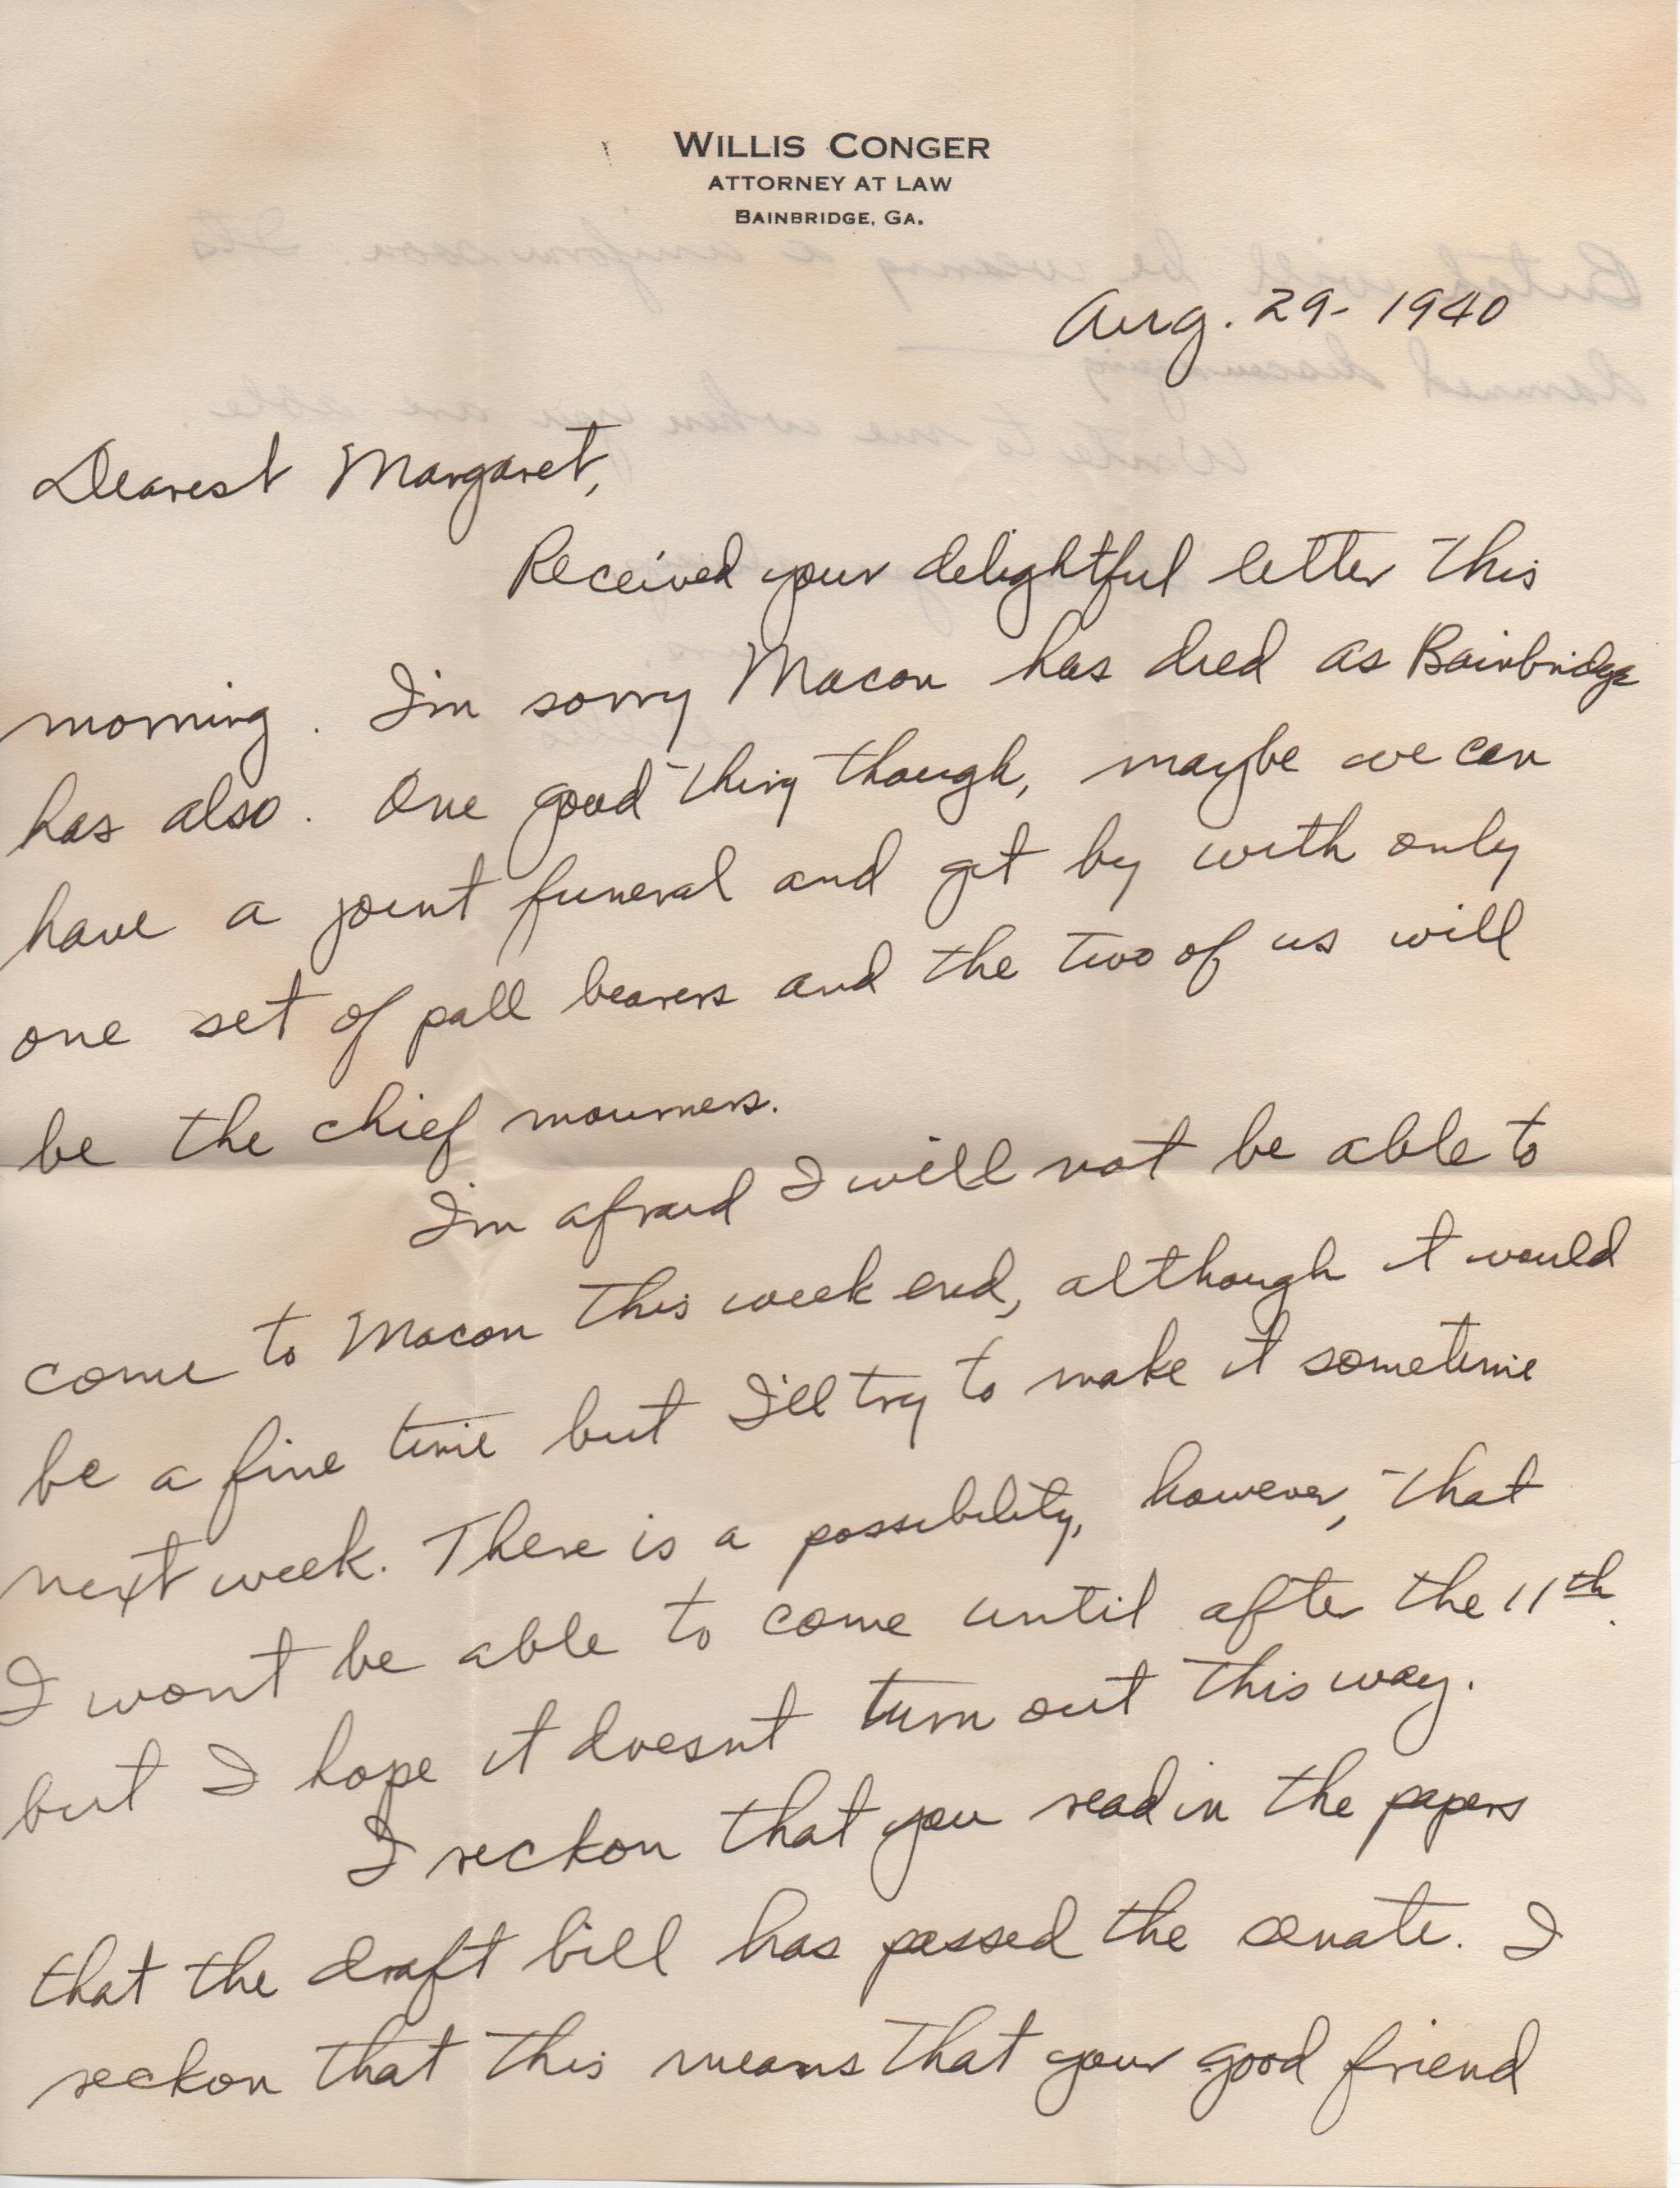 WILLIS CONGER
ATTORNEY AT LAW
BAINBRIDGE, GA.
Aug. 29- 1940
Dearest Margaret,
Received your delightful letter this
morning. I'm sorry Macon has died as Bainbridge
has also. One good thing though, maybe we can
have a joint funeral and get by with only
one set of pall bearers and the two of us will
be the chief mourners.
I'm afraid I will not be able to
come to Macon this week end, although it would
be a fine time but I'll try to make it sometime
next week. There is a possibility, however, that
I wont be able to come until after the 11th.
but I hope it doesnt turn out this way.
I reckon that you read in the papers
that the draft bill has passed the senate. I
reckon that this means that your good friend